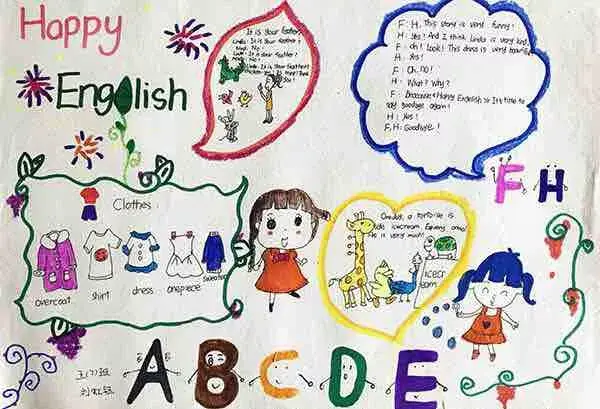 Happy
English
It is your feather,
Linda: It is your feather?
No.
feather?
No.
It is your feather!
F: H, This story is very funny!
H: Yes! And I think Linda is very kind.
F: oh! Look! This dress is very beautiful
H: Yes!
F: Oh, no!
H: What? Why?
F: English is It's time to
say goodbye again!
H: Yes!
F, H: Goodbye!
F H
Clothes
overcoat shirt dress onepiece sweater
One day, a tortoise is
icecream. Every
He is very much!
icecr
eam
A B C D E